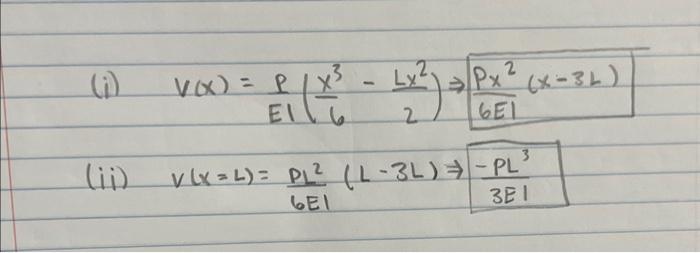 (i) v(x) = P/EI (x³/6 - Lx²/2) ⇒ Px²/6EI (x-3L)
(ii) v(x=L) = PL²/6EI (L-3L) ⇒ -PL³/3EI